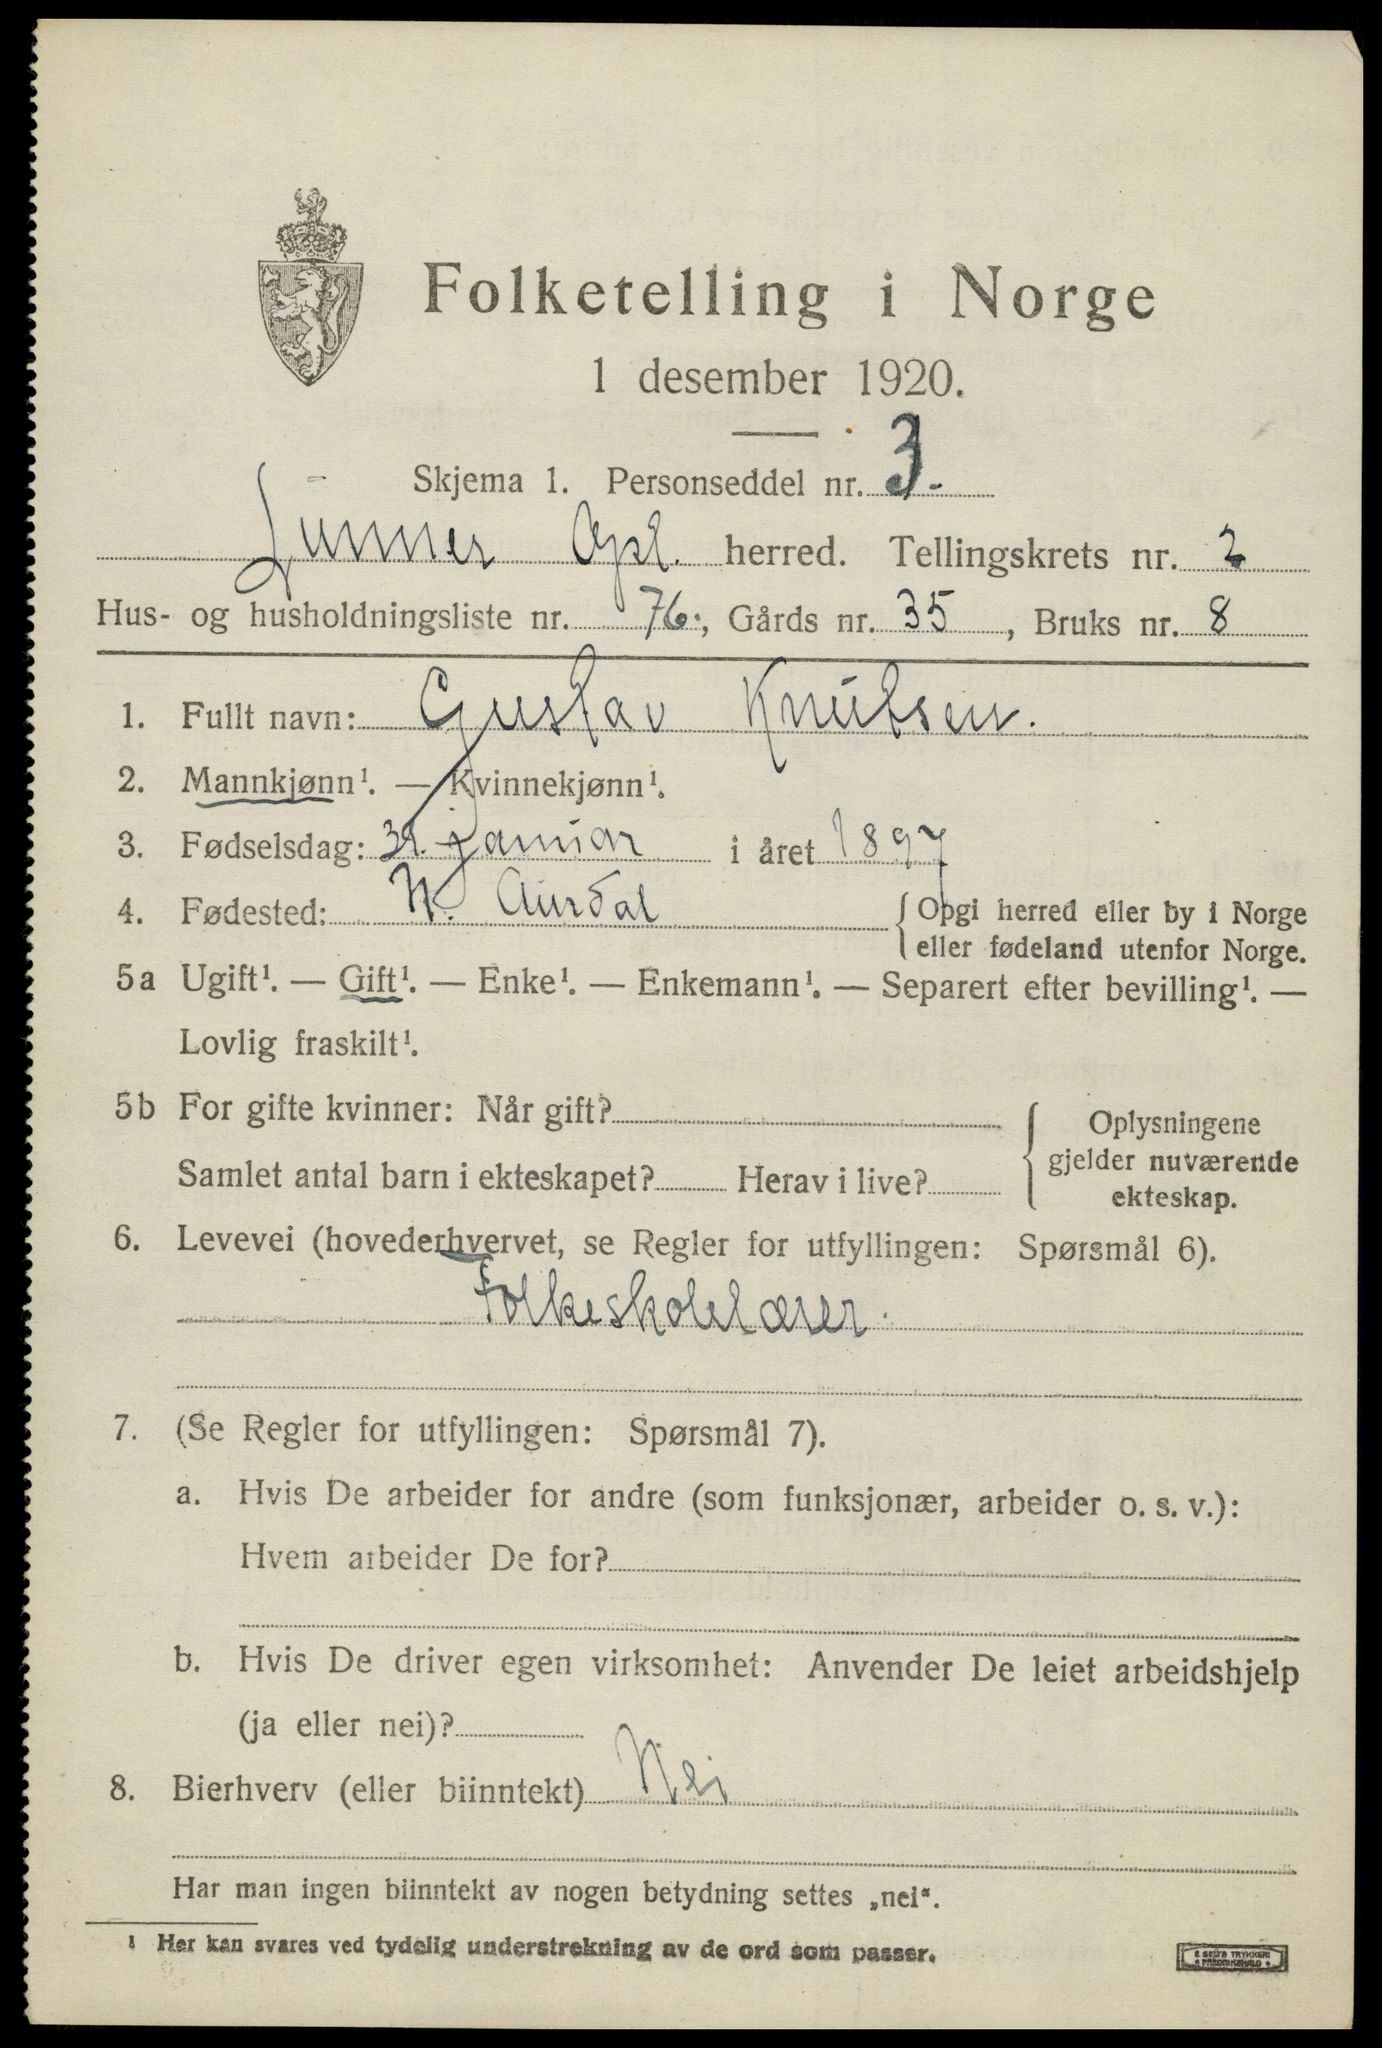 Folketelling i Norge
1 desember 1920.
Skjema 1. Personseddel nr. 3.
Lunner Opl. herred. Tellingskrets nr. 2
Hus- og husholdningsliste nr. 76., Gårds nr. 35, Bruks nr. 8
1. Fullt navn: Gustav Knutsen.
2. Mannkjønn¹. — Kvinnekjønn¹.
3. Fødselsdag: januar i året 1897
4. Fødested: N. Aurdal {Opgi herred eller by i Norge
eller fødeland utenfor Norge.
5a Ugift¹. — Gift¹. — Enke¹. — Enkemann¹. — Separert efter bevilling¹. —
Lovlig fraskilt¹.
5b For gifte kvinner: Når gift? { Oplysningene
gjelder nuværende
Samlet antal barn i ekteskapet? Herav i live?
ekteskap.
6. Levevei (hovederhvervet, se Regler for utfyllingen: Spørsmål 6).
Folkeskolelærer.
7. (Se Regler for utfyllingen: Spørsmål 7).
a. Hvis De arbeider for andre (som funksjonær, arbeider o. s. v.):
Hvem arbeider De for?
b. Hvis De driver egen virksomhet: Anvender De leiet arbeidshjelp
(ja eller nei)?
8. Bierhverv (eller biinntekt) Nei
Har man ingen biinntekt av nogen betydning settes „nei“.
1 Her kan svares ved tydelig understrekning av de ord som passer.
E SEM'S TRYKKERI
• FREDRIKSHALD •